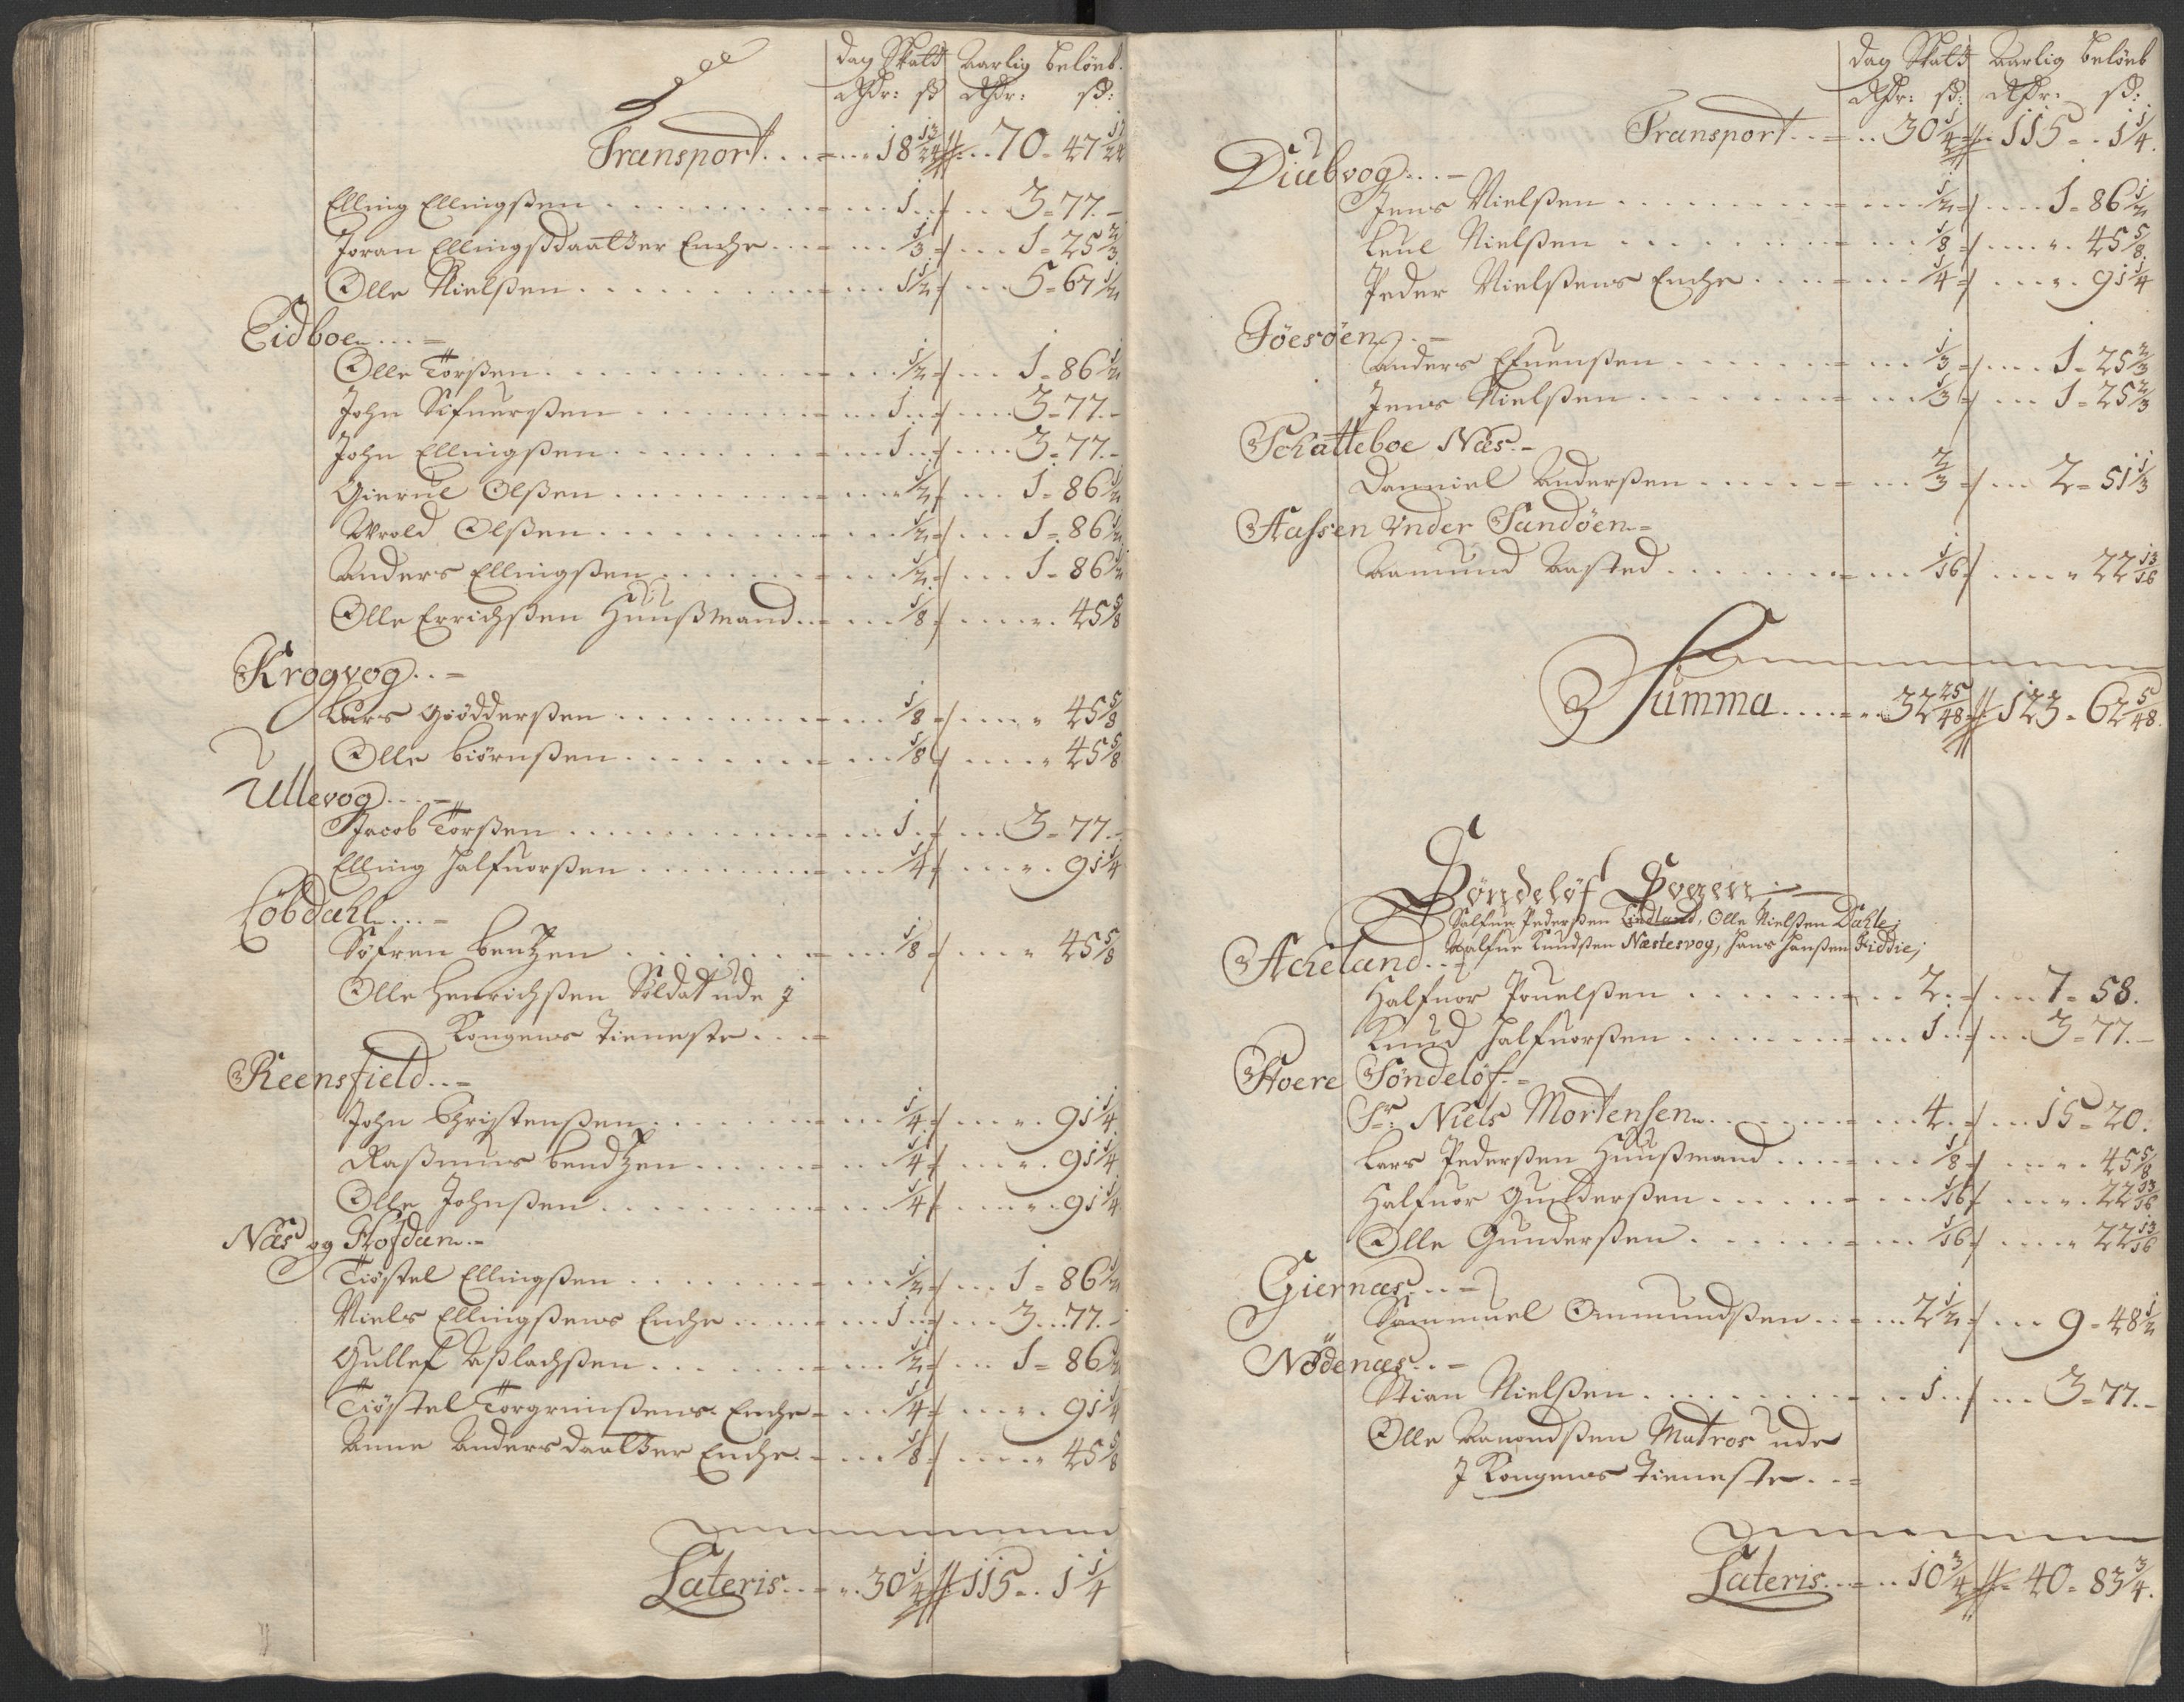 Dag Skatt Aarlig beløeb.
Rdr: ß Rdr: ß:
Transport . . . 18 13/24 70 = 47 17/24
Elling Ellingßen . . . 1 . . 3 = 77 . -
Joran Ellingsdaatter Enche . . . 1/3 . . 1 = 25 2/3
Olle Nielßen . . . 1 1/2 . . 5 = 67 1/2
Eidboe . . . =
Olle Torßen . . . 1/2 . . 1 = 86 1/2
John Sifuerßen . . . 1 . . 3 = 77 . -
John Ellingßen . . . 1 . . 3 = 77 . -
Gierul Olßen . . . 1/2 . . 1 = 86 1/2
Wrold Olßen . . . 1/2 . . 1 = 86 1/2
Anders Ellingßen . . . 1/2 . . 1 = 86 1/2
Olle Errichßen Huußmand . . . 1/8 . . 45 5/8
Krogvog . . =
Lars Giødderßen . . . 1/8 . . 45 5/8
Olle biørnßen . . . 1/8 . . 45 5/8
Ullevog . . . =
Jacob Torßen . . . 1 . . 3 = 77 . -
Elling Halfuorßen . . . 1/4 . . 91 1/4
Løbdahl . . . =
Søfren bentzen . . . 1/8 . . 45 5/8
Olle Henrichßen Soldat ude j
Kongens Tieneste . . . =
Reensfield . . =
John Christenßen . . . 1/4 . . 91 1/4
Raßmus bendtzen . . . 1/4 . . 91 1/4
Olle Johnßen . . . 1/4 . . 91 1/4
Næs og Hofdam . =
Tiøstel Ellingßen . . . 1/2 . . 1 = 86 1/2
Niels Ellingßens Enche . . . 1 . . 3 . . 77 . -
Gullef Aßlachßen . . . 1/2 . . 1 = 86 1/2
Tiøstel Torgrimßens Enche = . . . 1/4 . . 91 1/4
Anne Andersdaatter Enche . = . . . 1/8 . . 45 5/8
Lateris . . = . . 30 1/4 115 = . 1 1/4
Dag Skatt Aarlig beløeb
Rdr: ß: Rdr: ß:
Transport . . = . . 30 1/4 115 = . 1 1/4
Diubvog . . . =
Jens Nielßen . . . 1/2 . . 1 = 86 1/2
Leul Nielßen . . . 1/8 . . 45 5/8
Peder Nielßens Enche . . . 1/4 . . 91 1/4
Göesöen . . =
Anders Efuenßen . . . 1/3 . . 1 = 25 2/3
Jens Nielßen . . . 1/3 . . 1 = 25 2/3
Schatteboe Næs . =
Danniel Anderßen . . . 2/3 . . 2 = 51 1/3
Hassen under Sandöen . =
Aamund Aasted . . . 1/16 . . 22 13/16
Summa . . . . 32 25/48 123 = 62 5/48
Søndeløf Sogen . =
Halfuor Pederßen Lindland, Olle Nielßen Dahle,
Halfuor Knudßen Næstesvog, Hans Hanßen Fiddie,
Acheland . . =
Halfuor Pouelßen . . . 2 . . 7 = 58 .
Knud Halfuorßen . . . 1 . . 3 = 77 . -
Hoere Søndeløf . =
Sr: Niels Mortensen . . . 4 . . 15 = 20 .
Lars Pederßen Huußmand . . . 1/8 . . 45 5/8
Halfuor Gunderßen . . . 1/16 . . 22 13/16
Olle Gunderßen . . . 1/16 . . 22 13/16
Giernæs . . . =
Sammuel Omundßen . . . 2 1/2 . . 9 = 48 1/2
Nødenæs . . =
Stian Nielßen . . . 1 . . 3 = 77 . -
Olle Aanondßen Matros ude
J Kongens Tieneste . . =
Lateris . . = . . 10 3/4 40 = 83 3/4 .